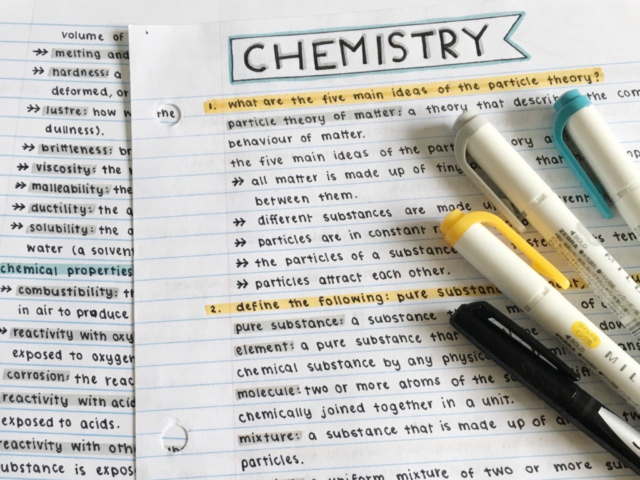 volume of
→ melting and
→ hardness: a
deformed, or
→ lustre: how
dullness).
→ brittleness: br
→ viscosity: the
→ malleability: the
→ ductility: the a
→ solubility: the a
water (a solven
chemical properties
→ combustibility: th
in air to produce
→ reactivity with oxy
exposed to oxygen
corrosion: the reac
reactivity with acid
exposed to acids.
reactivity with oth
substance is expos
the
CHEMISTRY
1. what are the five main ideas of the particle theory?
particle theory of matter: a theory that describ the com
behaviour of matter.
the five main ideas of the part theory
→ all matter is made up of tiny that
between them.
→ different substances are made u erent
→ particles are in constant
→ the particles of a substance ten
→ particles attract each other.
2. define the following: pure substan
pure substance: a substance
element: a pure substance that down
chemical substance by any physica
molecule: two or more atoms of the s
chemically joined together in a unit.
mixture: a substance that is made up of a
particles.
uniform mixture of two or more su
MIL